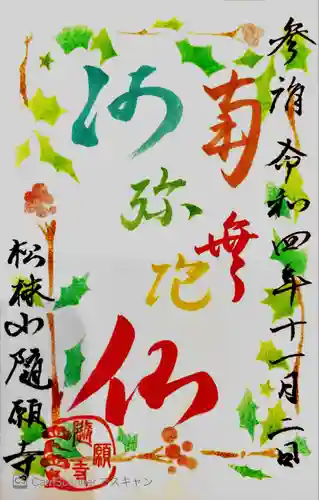 参詣 令和四年十一月二日
南無
阿弥陀
仏
松林山随願寺
随願寺
CamScanner でスキャン